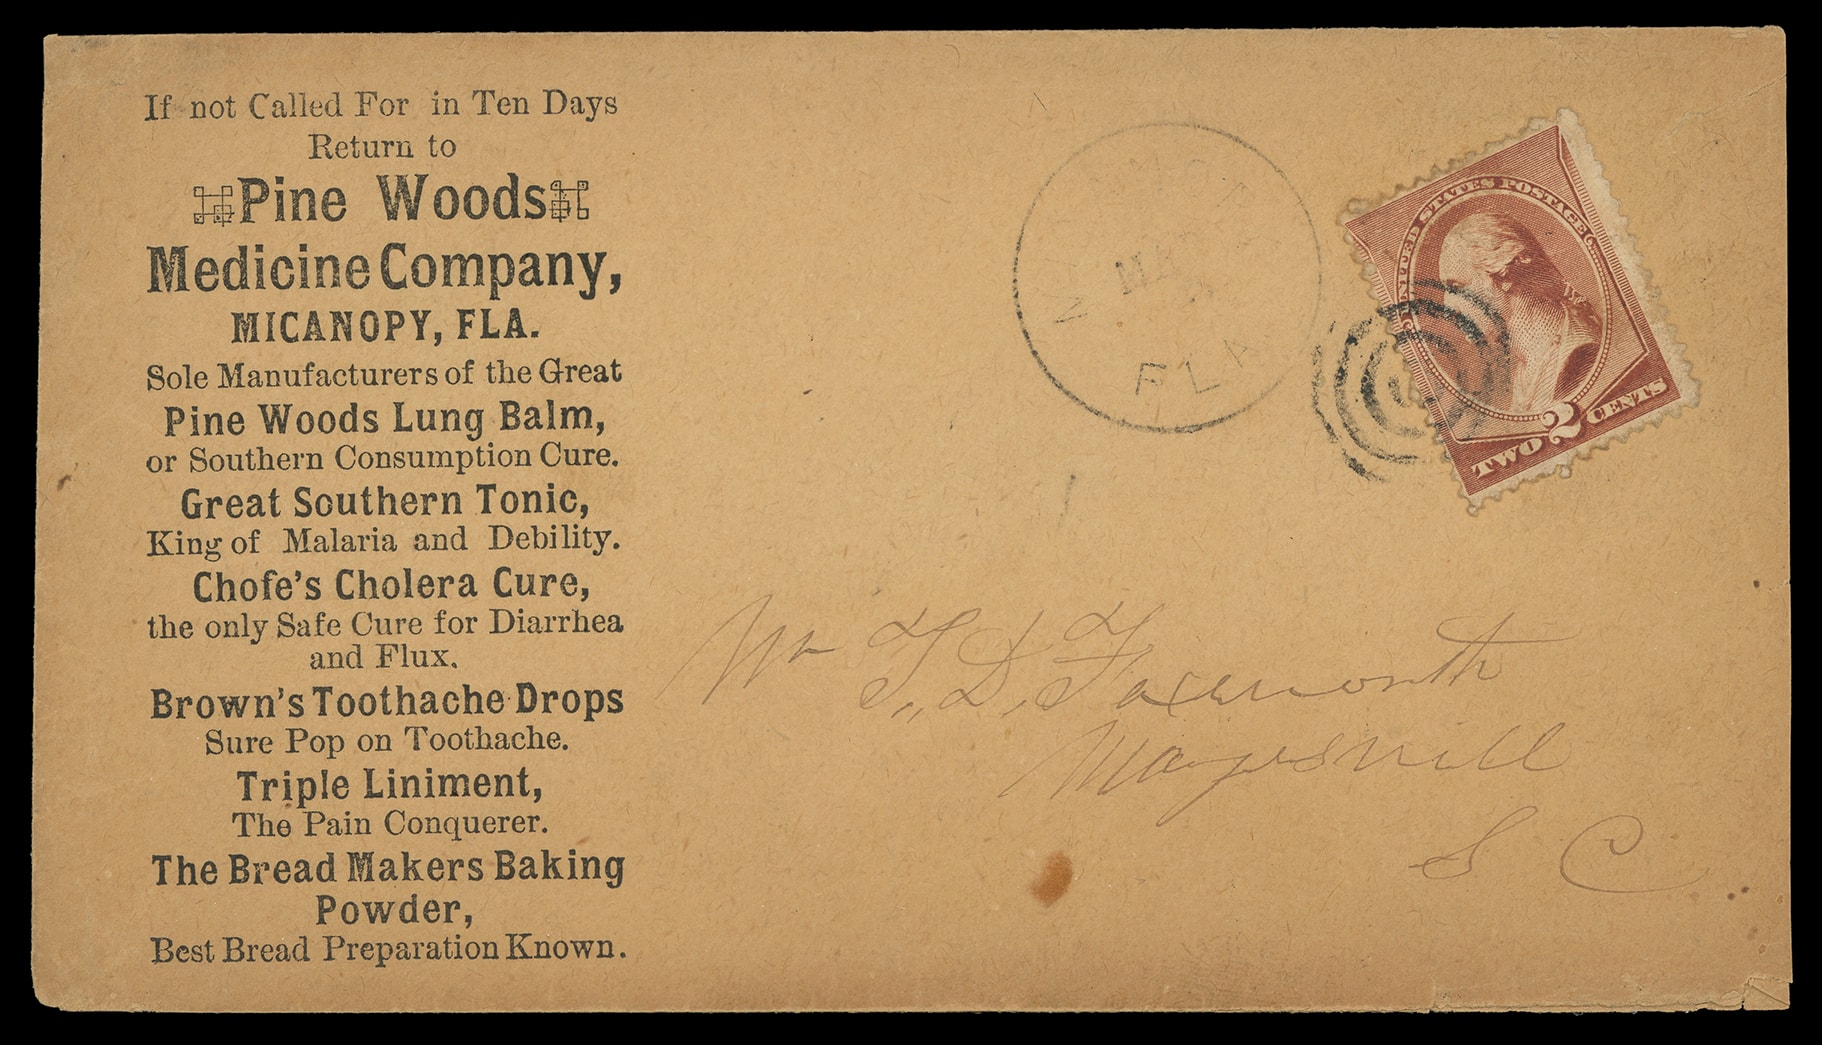 If not Called For in Ten Days
Return to
Pine Woods
Medicine Company,
MICANOPY, FLA.
Sole Manufacturers of the Great
Pine Woods Lung Balm,
or Southern Consumption Cure.
Great Southern Tonic,
King of Malaria and Debility.
Chofe's Cholera Cure,
the only Safe Cure for Diarrhea
and Flux.
Brown's Toothache Drops
Sure Pop on Toothache.
Triple Liniment,
The Pain Conquerer.
The Bread Makers Baking
Powder,
Best Bread Preparation Known.
FLA
UNITED STATES POSTAGE
TWO 2 CENTS
T. D. Foxworth
Mayesvill
S C